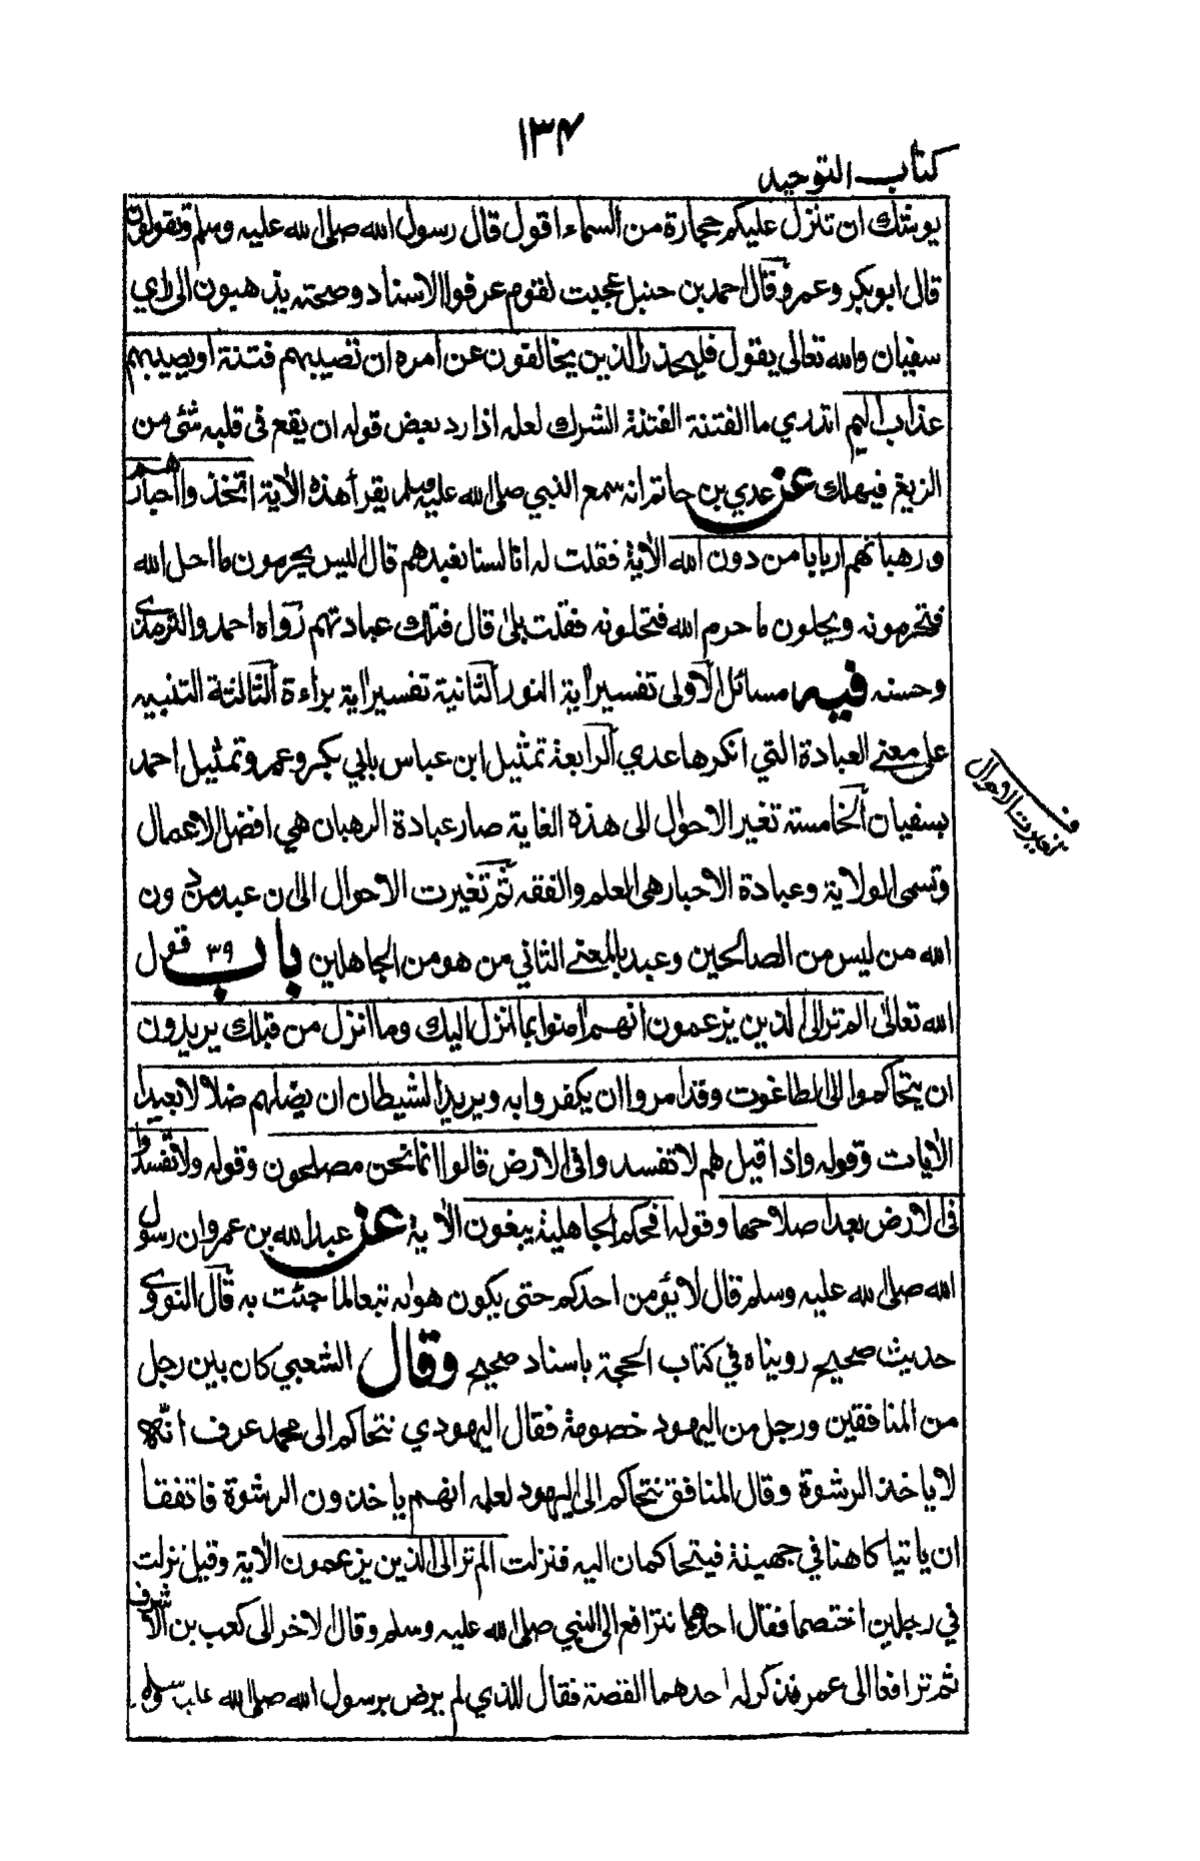 ١٣٤
كتاب التوحيد
يوشك ان تنزل عليكم حجارة من السماء اقول قال رسول الله صلى الله عليه وسلم وتقولون
قال ابوبكر وعمر وقال احمد بن حنبل عجبت لقوم عرفوا الاسناد وصحته يذهبون الى راي
سفيان والله تعالى يقول فليحذر الذين يخالفون عن امره ان تصيبهم فتنة او يصيبهم
عذاب اليم اتدري ما الفتنة الفتنة الشرك لعله اذا رد بعض قوله ان يقع في قلبه شئ من
الزيغ فيهلك عن عدي بن حاتم انه سمع النبي صلى الله عليه وسلم يقرأ هذه الاٰية اتخذوا احبارهم
ورهبانهم اربابا من دون الله الاٰية فقلت له انا لسنا نعبدهم قال اليس يحرمون ما احل الله
فتحرمونه ويحلون ما حرم الله فتحلونه فقلت بلىٰ قال فتلك عبادتهم رواه احمد والترمذي
وحسنه فيه مسائل الاولى تفسير اٰية النور الثانية تفسير اٰية براءة الثالثة التنبيه
على معنى العبادة التي انكرها عدي الرابعة تمثيل ابن عباس بابي بكر وعمر وتمثيل احمد
بسفيان الخامسة تغير الاحوال الى هذه الغاية صار عبادة الرهبان هي افضل الاعمال
وتسمى الولاية وعبادة الاحبار هى العلم والفقه ثم تغيرت الاحوال الى ان عبد من دون
الله من ليس من الصالحين وعبد بالمعنى الثاني من هو من الجاهلين باب ٣٩ قول
الله تعالىٰ الم تر الى الذين يزعمون انهم اٰمنوا بما انزل اليك وما انزل من قبلك يريدون
ان يتحاكموا الى الطاغوت وقد امروا ان يكفروا به ويريد الشيطان ان يضلهم ضلالا بعيدا
الاٰيات وقوله واذا قيل لهم لا تفسدوا فى الارض قالوا انما نحن مصلحون وقوله ولا تفسدوا
فى الارض بعد اصلاحها وقوله افحكم الجاهلية يبغون الاٰية عن عبد الله بن عمرو ان رسول
الله صلى الله عليه وسلم قال لا يؤمن احدكم حتى يكون هواه تبعا لما جئت به قال النووي
حديث صحيح رويناه في كتاب الحجة باسناد صحيح وقال الشعبي كان بين رجل
من المنافقين ورجل من اليهود خصومة فقال اليهودي نتحاكم الى محمد عرف انه
لا ياخذ الرشوة وقال المنافق نتحاكم الى اليهود لعلمه انهم ياخذون الرشوة فاتفقا
ان ياتيا كاهنا في جهينة فيتحاكمان اليه فنزلت الم تر الى الذين يزعمون الاٰية وقيل نزلت
في رجلين اختصما فقال احدهما نترافع الى النبي صلى الله عليه وسلم وقال الاخر الى كعب بن الاشرف
ثم ترافعا الى عمر فذكر له احدهما القصة فقال للذي لم يرض برسول الله صلى الله عليه وسلم
ف
تغيرت الاحوال